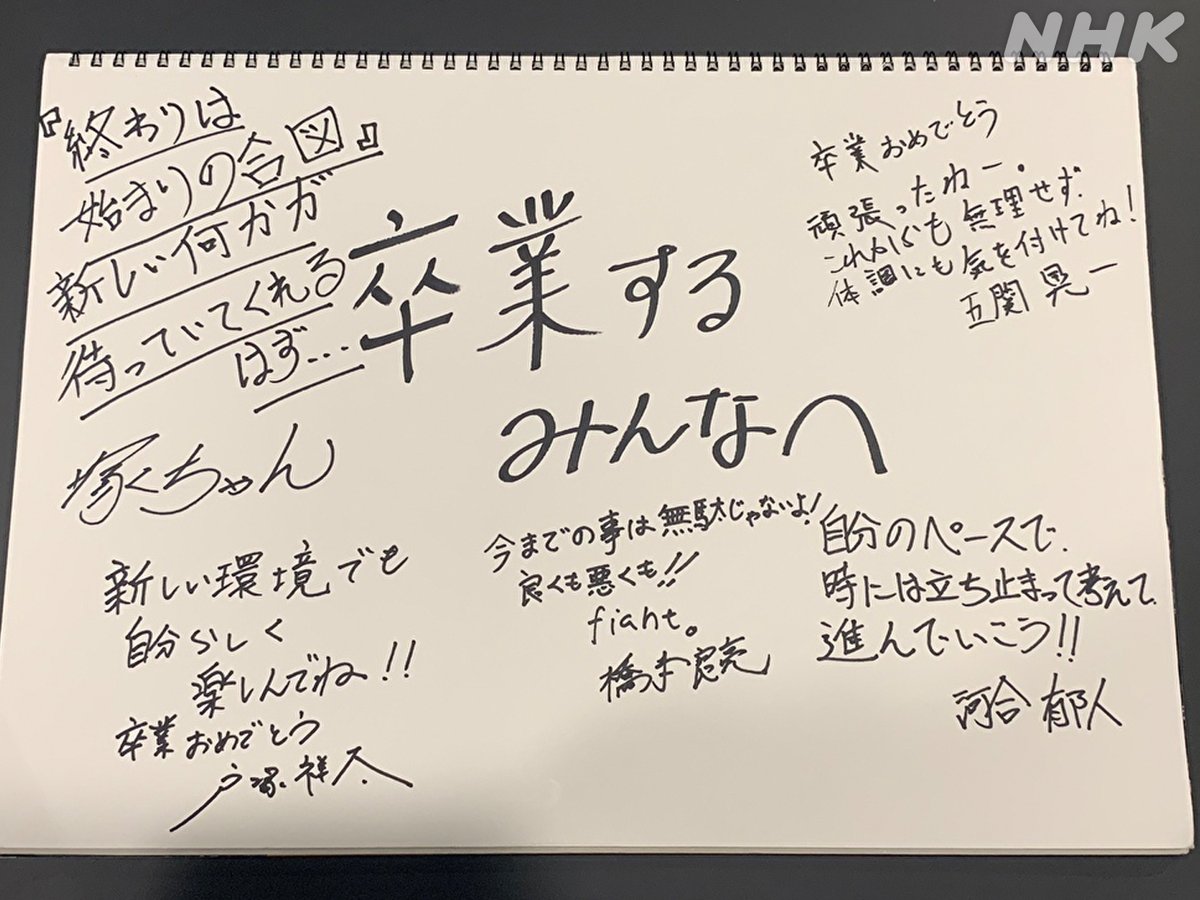 NHK
『終わりは
始まりの合図』
新しい何かが
待っていてくれる
はず…
塚ちゃん
卒業する
みんなへ
卒業おめでとう
頑張ったねー。
これからも無理せず、
体調にも気を付けてね!
五関晃一
新しい環境でも
自分らしく
楽しんでね!!
卒業おめでとう
戸塚祥太
今までの事は無駄じゃないよ!
良くも悪くも!!
fight。
橋本良亮
自分のペースで、
時には立ち止まって考えて、
進んでいこう!!
河合郁人